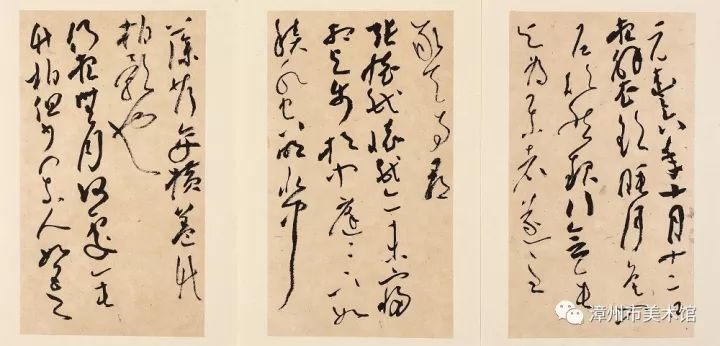 元豐六年十月十二日
夜解衣欲睡月色入
戶欣然起行念無
與為樂者遂至
承天寺尋
張懷民懷民亦未寢
相與步於中庭庭下如
積水空明水中
藻荇交橫蓋竹
柏影也
何夜無月何處無
竹柏但少閑人如吾
漳州市美术馆